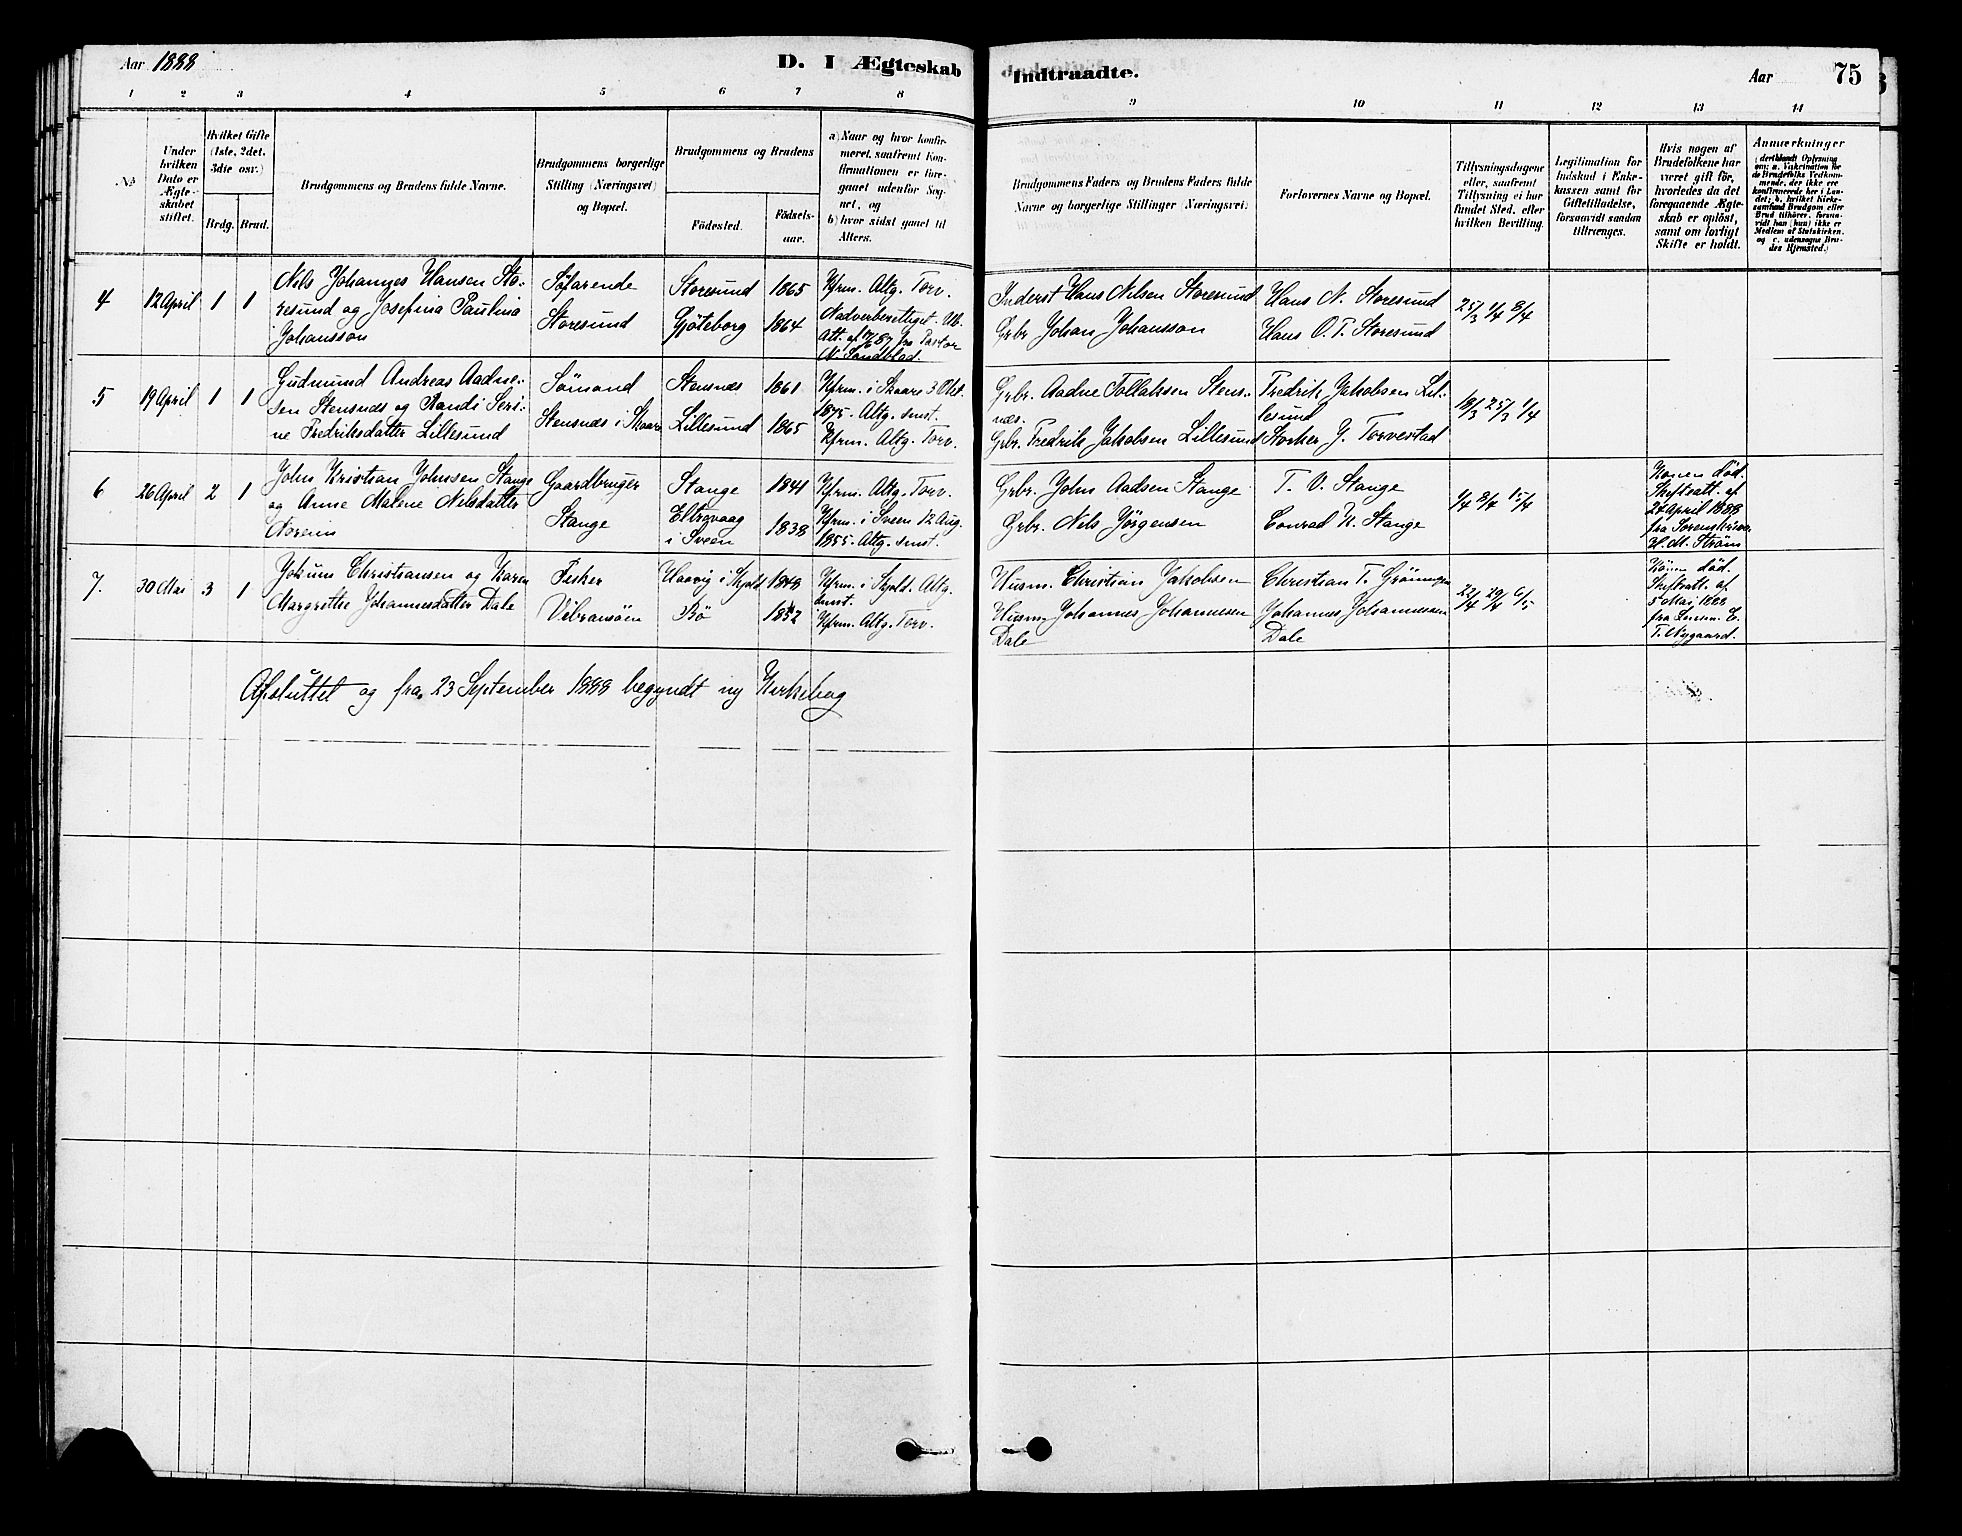 Aar 1888
D. I Ægteskab
Indtraadte.
Aar
75
1 2 3 4 5 6 7 8
9 10 11 12 13 14
No.
Under hvilken Dato er Ægteskabet stiftet.
Hvilket Gifte (1ste, 2det, 3die osv.)
Brdg.
Brud.
Brudgommens og Brudens fulde Navne.
Brudgommens borgerlige Stilling (Næringsvei) og Bopæl.
Brudgommens og Brudens
Födested.
Födsels-aar.
a) Naar og hvor konfir-
meret, saafremt Kon-
firmationen er fore-
gaaet udenfor Sog-
net, og
b) hvor sidst gaaet til
Alters.
Brudgommens Faders og Brudens Faders fulde
Navne og borgerlige Stillinger (Næringsvei)
Forlovernes Navne og Bopæl.
Tillysningsdagene
eller, saafremt
Tillysning ei har
fundet Sted, efter
hvilken Bevilling.
Legitimation for
Indskud i Enke-
kassen samt for
Giftetilladelse,
forsaavidt saadan
tiltrænges.
Hvis nogen af
Brudefolkene har
været gift för,
hvorledes da det
foregaaende Ægte-
skab er oplöst,
samt om lovligt
Skifte er holdt.
Anmærkninger
(deriblandt Oplysning
om: a. Vakcination for
de Brudefolks Vedkom-
mende, der ikke ere
konfirmerede her i Lan-
det; b. hvilket Kirke-
samfund Brudgom eller
Brud tilhörer, forsaa-
vidt han (hun) ikke er
Medlem af Statskirken,
og c. udensogns Bru-
des Hjemsted.)
4 12 April 1 1
Nils Johannes Hansen Sto-
resund og Josefina Paulina
Johansson
Söfarende
Storesund
Storesund 1865
Gjöteborg 1864
Kfrm. Altg. Torv.
Nadverberettiget. Ub.
Att. af fra Pastor
N. Sandblad.
Inderst Hans Nilsen Storesund
Grbr Johan Johansson
Hans N. Storesund
Hans O. T. Storesund
25/3 1/4 8/4
5 19 April 1 1
Gudmund Andreas Aadne-
sen Stensnæs og Randi Seri-
ne Fredriksdatter Lillesund
Sömand
Stensnæs i Skaare
Stensnæs 1861
Lillesund 1865
Kfrm. i Skaare 3 Okt.
1875. Altg. smst.
Kfrm. Altg. Torv.
Grbr. Aadne Tollaksen Stens-
næs.
Grbr. Fredrik Jakobsen Lillesund
Fredrik Jakobsen Lil-
lesund
Storker J. Torvestad
18/3 25/3 1/4
6 26 April 2 1
John Kristian Johnsen Stange
og Anne Malene Nilsdatter
Noreim
Gaardbruger
Stange
Stange 1841
Eltravaag
i Sveen 1838
Kfrm. Altg. Torv.
Kfrm. i Sveen 12 Aug.
1855. Altg. smst.
Grbr. John Aadsen Stange
Grbr. Nils Jörgensen
T. V. Stange
Conrad K. Stange
1/4 8/4 15/4
Konen död.
Skifteatt. af
24 April 1888
fra Sorenskriver
H. M. Ström
7. 30 Mai 3 1
Jokum Christiansen og Karen
Margrethe Johannesdatter Dale
Fisker
Vibransöen
Haavig i Skjold 1848
Bö 1852
Kfrm. i Skjold. Altg.
smst.
Kfrm. Altg. Torv.
Husm. Christian Jakobsen
Husm. Johannes Johannesen
Dale
Christian T. Grönningen
Johannes Johannesen
Dale
22/4 29/4 6/5
Konen död.
Skifteatt. af
5 Mai 1888
fra Lensm. E.
T. Nygaard.
Afsluttet og fra 23 September 1888 begyndt ny Kirkebog